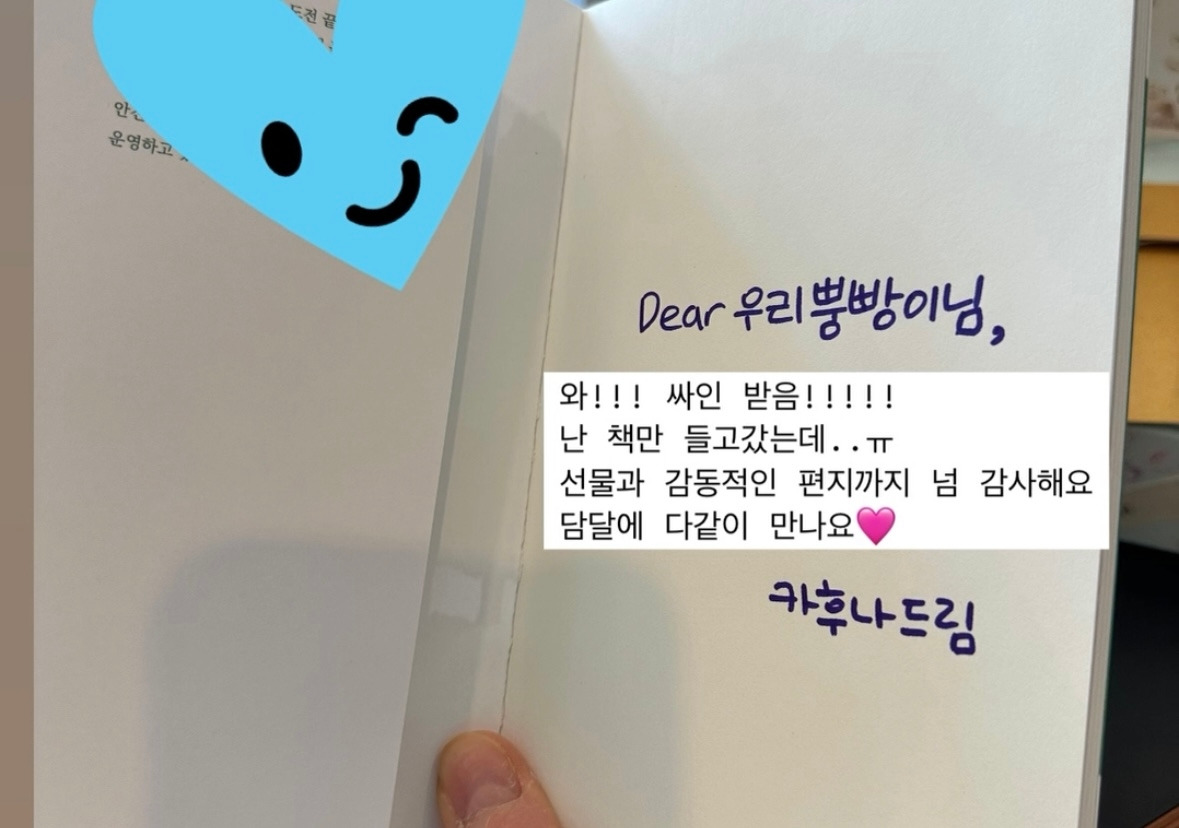 도전 끝
안전
운영하고
Dear 우리뿡빵이님,
와!!! 싸인 받음!!!!!
난 책만 들고갔는데..ㅠ
선물과 감동적인 편지까지 넘 감사해요
담달에 다같이 만나요🩷
카후나드림